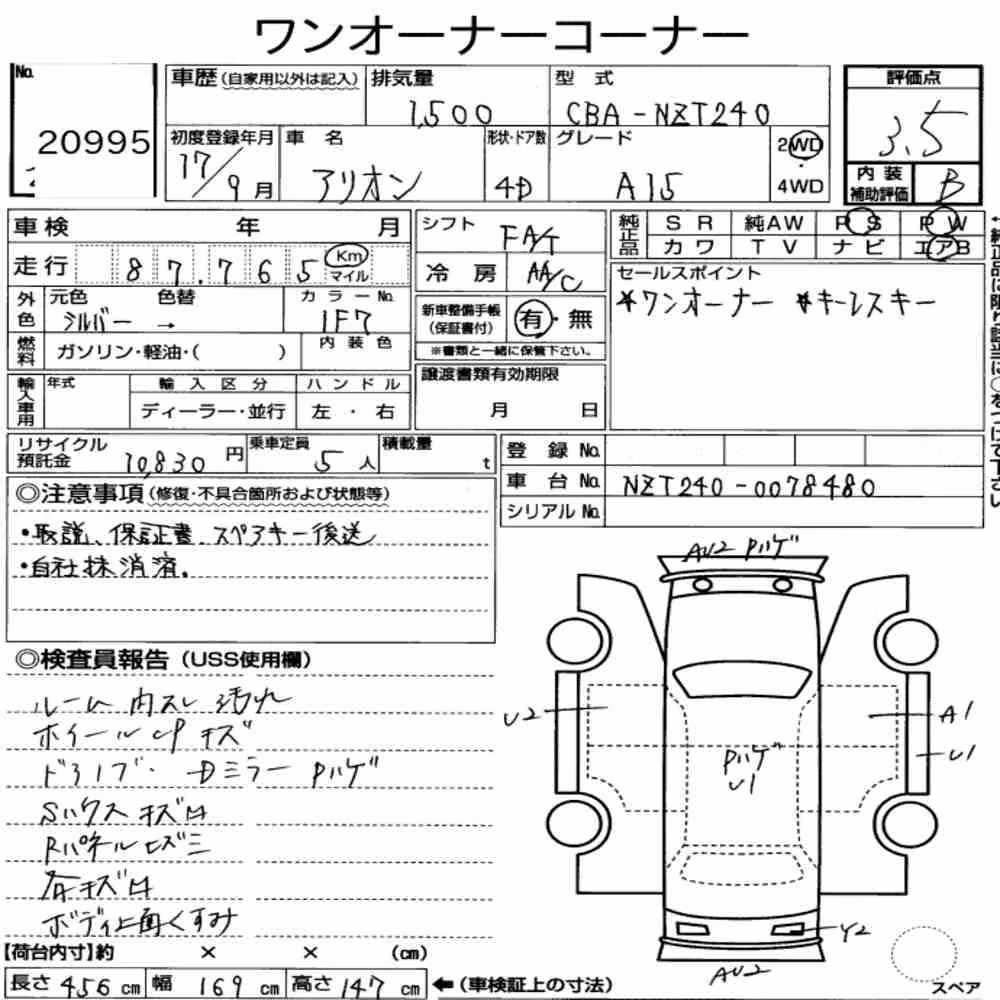 ワンオーナーコーナー
No.
20995
車歴(自家用以外は記入) 排気量 型式
1,500 CBA-NZT240
評価点
3.5
初度登録年月 車名 形状・ドア数 グレード
17/9月 アリオン 4D A15
2WD・4WD
内装補助評価 B
車検 年 月
走行 87,765 Km マイル
シフト FA/T
冷房 AA/C
純正品 SR 純AW PS PW
カワ TV ナビ エアB
セールスポイント
*ワンオーナー *キーレスキー
←純正品に限り該当に○をつけて下さい
外色 元色 色替 カラーNo.
シルバー → 1F7
燃料 ガソリン・軽油・( ) 内装色
新車整備手帳(保証書付) 有・無
※書類と一緒に保管下さい。
譲渡書類有効期限
月 日
輸入車用 年式 輸入区分 ハンドル
ディーラー・並行 左・右
リサイクル預託金 10,830円 乗車定員 5人 積載量 t
登録No.
車台No. NZT240-0078480
シリアルNo.
◎注意事項(修復・不具合箇所および状態等)
・取説、保証書、スペアキー後送
・自社抹消済.
◎検査員報告(USS使用欄)
ルーム内スレ汚れ
ホイールcpキズ
ドライブ・Dミラー Pハゲ
Sハウスキズ凹
Rパネルヒズミ
各キズ凹
ボディ上面くすみ
AU2 Pハゲ
U2
A1
U1
Pハゲ
U1
Y2
AU2
スペア
【荷台内寸】約 × × (cm)
長さ 456 cm 幅 169 cm 高さ 147 cm ←(車検証上の寸法)